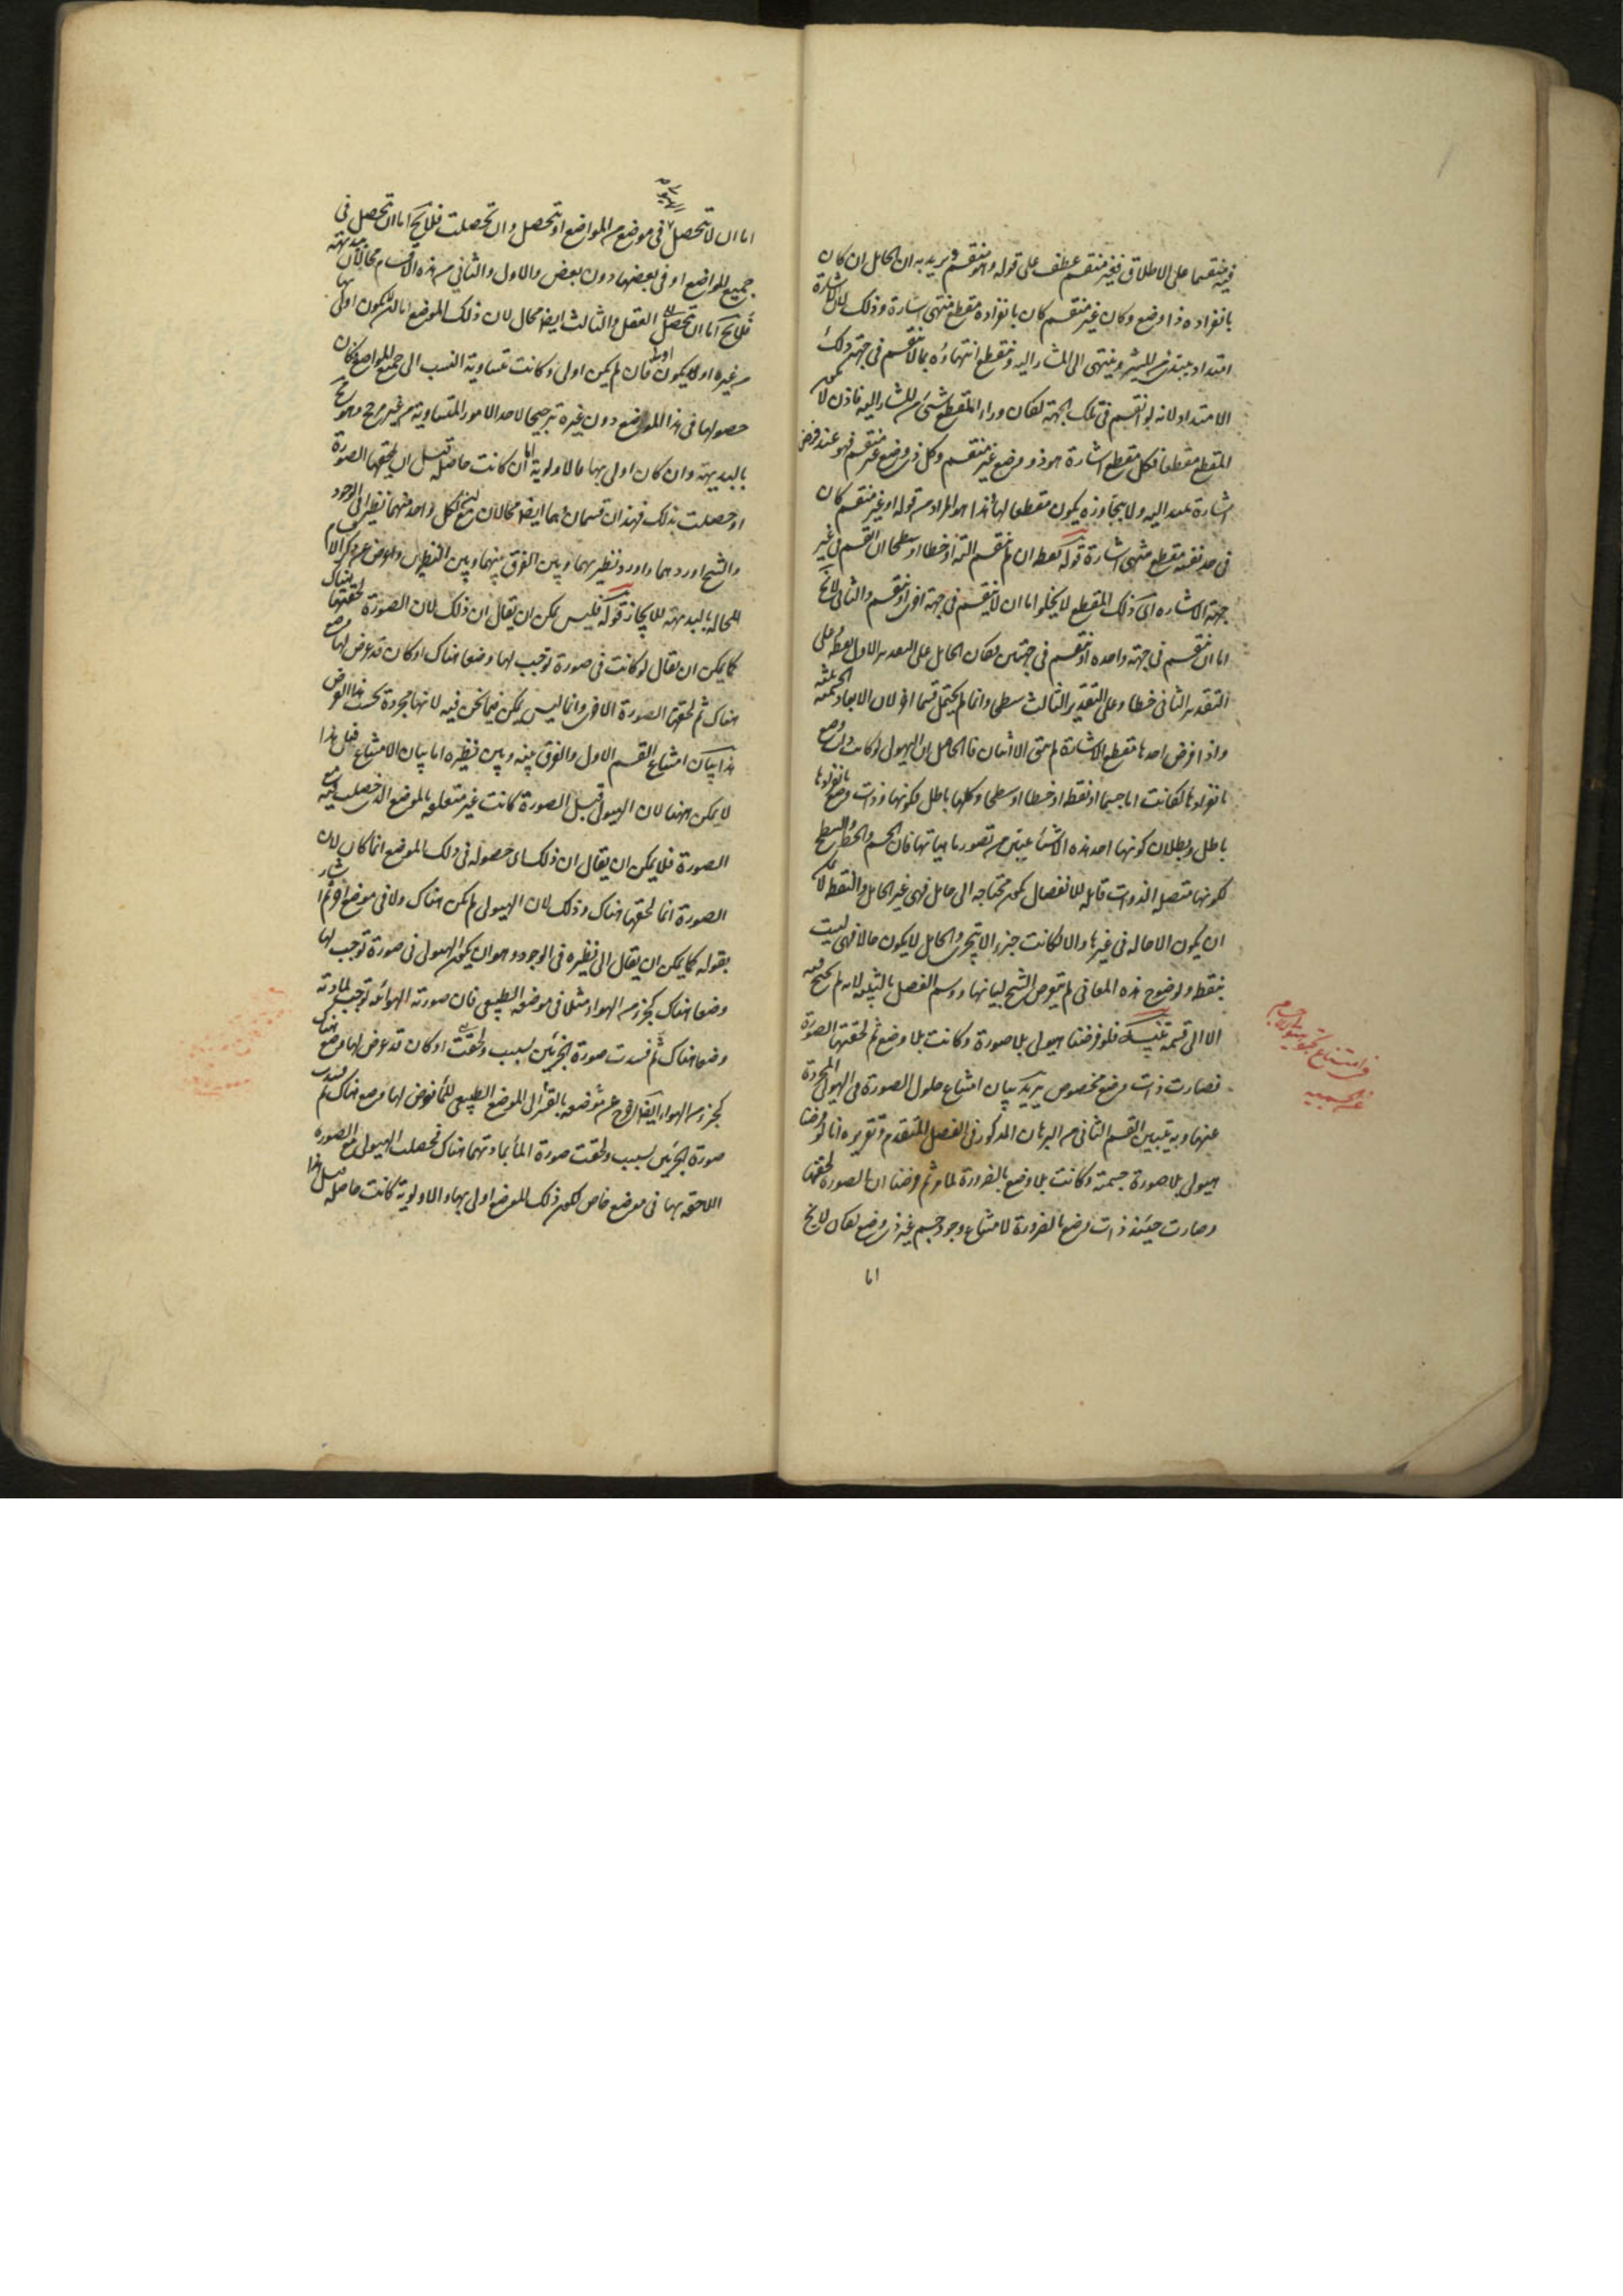 فيه منقسما على الاطلاق فغير منقسم عطف على قوله وهو منقسم ويريد به ان الحامل ان كان
بانفراده ذا وضع وكان غير منقسم كان بانفراده مقطع منتهى اشارة وذلك لان الاشارة
امتداد يبتدئ من المشير وينتهى الى المشار اليه وينقطع انتهاؤه بما لا ينقسم فى جهة ذلك
الامتداد لانه لو انقسم فى تلك الجهة لكان وراء المقطع شئ من المشار اليه فاذن لا يكون
المقطع مقطعا فكل مقطع اشارة هو ذو وضع غير منقسم وكل ذى وضع غير منقسم فهو عند فرض
اشارة تمتد اليه ولا يتجاوزه يكون مقطعا لها فهذا هو المراد من قوله او غير منقسم كان
فى حد نفسه مقطع منتهى اشارة قوله نقطة ان لم ينقسم البتة او خطا او سطحا ان انقسم فى غير
جهة الاشاره اى ذلك المقطع لا يخلو اما ان لا ينقسم فى جهة اخرى او ينقسم والثانى لا يخ
اما ان ينقسم فى جهة واحده او ينقسم فى جهتين فكان الحامل على التقدير الاول نقطة وعلى
التقدير الثانى خطا وعلى التقدير الثالث سطحا وانما لم يحتمل قسما اخر لان الابعاد الجسمية ثلثة
واذا فرض احدها مقطع الاشارة لم يبق الا اثنان فالحاصل ان الهيولى لو كانت ذات وضع
بانفرادها لكانت اما جسما او نقطة او خطا او سطحا وكلها باطل فكونها ذات وضع بانفرادها
باطل وبطلان كونها احد هذه الاشياء يتبين من تصور ماهياتها فان الجسم والخط والسطح
لكونها متصلة الذوات قابلة للانفصال يكون محتاجه الى حامل فهى غير الحامل والنقطة لا يمكن
ان يكون الا حاله فى غيرها والا لكانت جزء لا يتجزى والحامل لا يكون حالا فهى ليست
بنقطة ولوضوح هذه المعانى لم يتعرض الشيخ لبيانها ووسم الفصل بالتنبيه لانه لم يحتج فيه
الا الى قسمة تنبيه فلو فرضنا هيولى بلا صورة وكانت بلا وضع ثم لحقتها الصورة
فصارت ذات وضع مخصوص يريد بيان امتناع حلول الصورة فى الهيولى المجردة
عنها وبه يتبين القسم الثانى من البرهان المذكور فى الفصل المتقدم وتقريره انا لو فرضنا
هيولى بلا صورة جسمية وكانت بلا وضع بالضرورة لما مر ثم فرضنا ان الصورة لحقتها
وصارت حينئذ ذات وضع بالضرورة لامتناع وجود جسم غير ذى وضع لكان لا يخ
اما
فى امتناع
عن الجسميه
اما ان لا تتحصل فى موضع من المواضع او تتحصل وان تحصلت فلا يخ اما ان تتحصل فى
جميع المواضع او فى بعضها دون بعض والاول والثانى من هذه الاقسام محالان ببديهة
العقل والثالث ايضا محال لان ذلك الموضع اما ان يكون اولى بها
من غيره او لا يكون اولى فان لم يكن اولى وكانت متساوية النسب الى جميع المواضع كان
حصولها فى هذا الموضع دون غيره ترجيحا لاحد الامور المتساوية من غير مرجح وهو مح
بالبديهة وان كان اولى بها فالاولوية اما ان كانت حاصلة قبل ان يلحقها الصورة
او حصلت بذلك فهذان قسمان هما ايضا محالان لكن لكل واحد منهما نظير فى الوجود
والشيخ اوردهما واورد نظيرهما وبين الفرق بينهما وبين النظيرين واعرض عن ذكر الاقسام
المحالة بالبديهة للايجاز قوله فليس يمكن ان يقال ان ذلك لان الصورة لحقتها هناك
كما يمكن ان يقال لو كانت فى صورة توجب لها وضعا هناك او كان قد عرض لها وضع
هناك ثم لحقتها الصورة الاخرى وانما ليس يمكن فيما نحن فيه لانها مجردة بحسب هذا الفرض
هذا بيان امتناع القسم الاول والفرق بينه وبين نظيره اما بيان الامتناع فبان هذا
لا يمكن ههنا لان الهيولى قبل الصورة كانت غير متعلقه بالموضع الذى حصلت فيه مع
الصورة فلا يمكن ان يقال ان ذلك اى حصوله فى ذلك الموضع انما كان لان
الصورة انما لحقتها هناك وذلك لان الهيولى لم يكن هناك ولا فى موضع اخر ثم اشار
بقوله كما يمكن ان يقال الى نظيره فى الوجود وهو ان يكون الهيولى فى صورة توجب لها
وضعا هناك كجزء من الهواء مثلا فى موضعه الطبيعى فان صورته الهوائيه توجب لمادته
وضعا هناك ثم فسدت صورة الجزئين بسبب ولحقت او كان قد عرض لها وضع هناك
كجزء من الهواء ايضا اخرج عن موضعه بالقسر الى الموضع الطبيعى للماء فعرض لها وضع هناك ثم فسدت
صورة الجزئين بسبب ولحقت صورة الماء بمادتهما هناك فحصلت الهيولى مع الصورة
اللاحقه بها فى موضع خاص لكون ذلك الموضع اولى بها والاولوية كانت حاصله قبل هذا